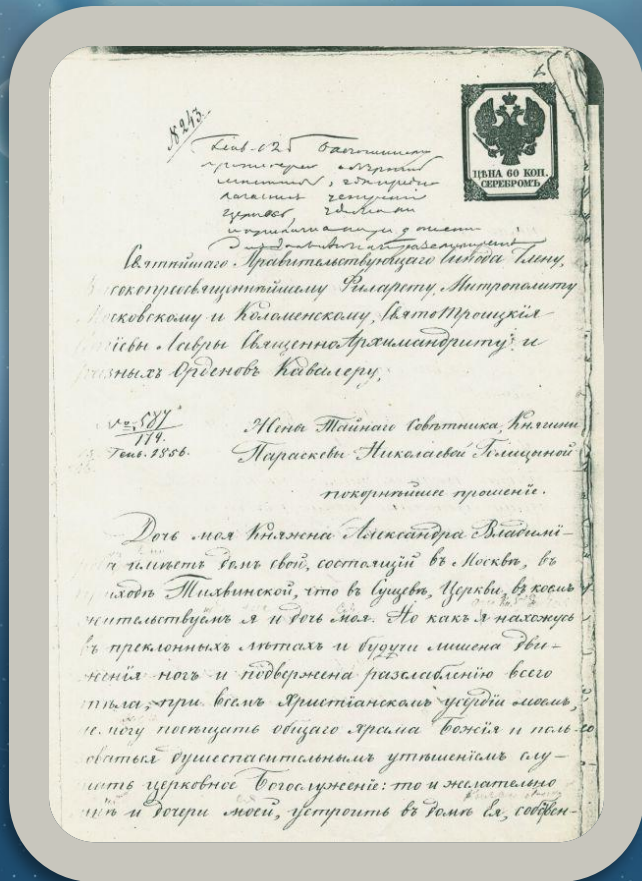 № 243.
ЦѢНА 60 КОП.
СЕРЕБРОМЪ
Святѣйшаго Правительствующаго Синода Члену,
Высокопреосвященнѣйшему Филарету, Митрополиту
Московскому и Коломенскому, СвятоТроицкія
Лавры СвященноАрхимандриту и
Орденовъ Кавалеру,
№ 587
179.
Генв. 1856.
Жены Тайнаго Совѣтника, Княгини
Параскевы Николаевой Голицыной
покорнѣйшее прошеніе.
Дочь моя Княжна Александра Владимі-
имѣетъ домъ свой, состоящій въ Москвѣ, въ
приходѣ Тихвинской, что въ Сущевѣ, Церкви, въ коемъ
жительствуемъ я и дочь моя. Но какъ я нахожусь
въ преклонныхъ лѣтахъ и будучи лишена дви-
женія ногъ и подвержена разслабленію всего
тѣла, при всемъ Христіанскомъ усердіи моемъ,
не могу посѣщать общаго храма Божія и поль-
зоваться душеспасительнымъ утѣшеніемъ слу-
шать церковное Богослуженіе: то и желательно
мнѣ и дочери моей, устроить въ домѣ Ея, собствен-